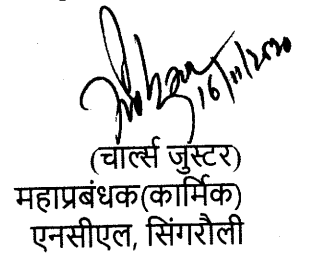 16/11/2020
(चार्ल्स जुस्टर)
महाप्रबंधक(कार्मिक)
एनसीएल, सिंगरौली